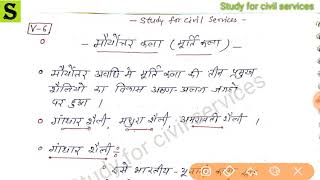 S
Study for civil services
- Study for civil services -
V-6
- मौर्योत्तर कला (मूर्तिकला) -
• मौर्योत्तर अवधि में मूर्ति कला की तीन प्रमुख
शैलियों का विकास अलग-अलग जगहों
पर हुआ ।
• गांधार शैली, मथुरा शैली, अमरावती शैली ।
• गांधार शैली :-
• इसे भारतीय - यूनानी कला
Study for civil services